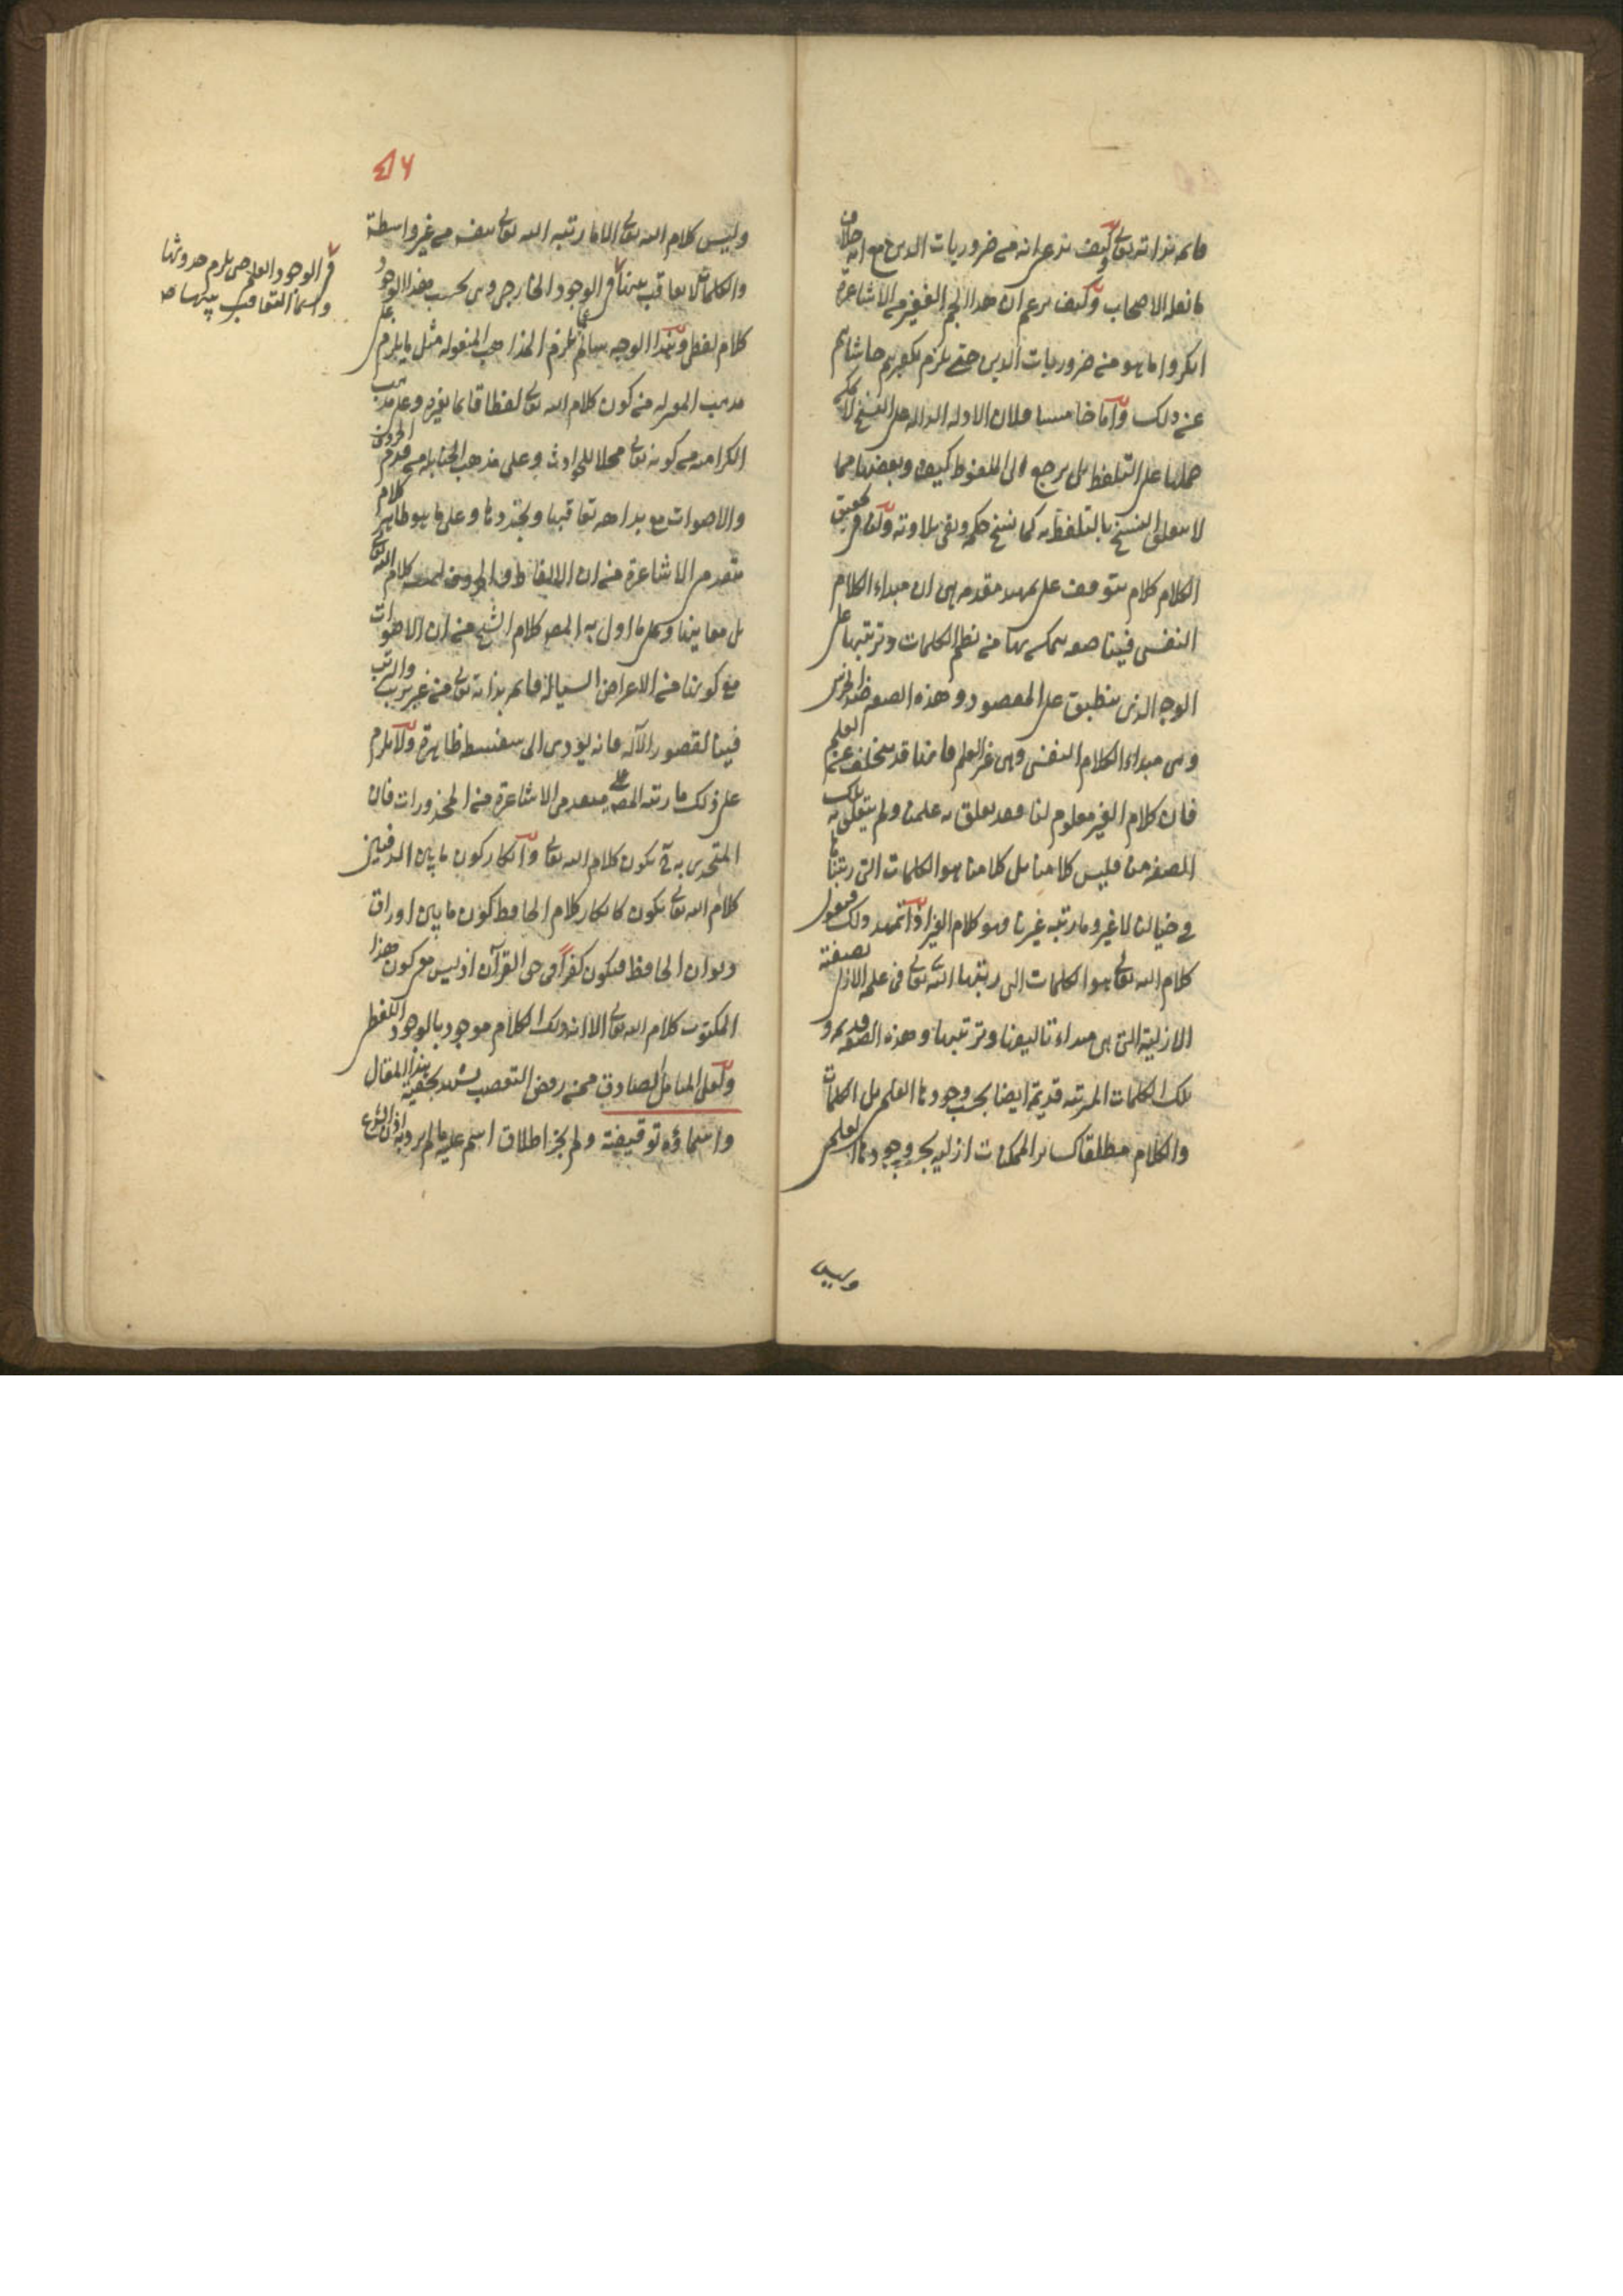 قائم بذاته تعالى وكيف يدعى انه من ضروريات الدين مع انه خلاف
ما نقله الاصحاب وكيف يزعم ان هذا الجم الغفير من الاشاعرة
انكروا ما هو من ضروريات الدين حتى يلزم تكفيرهم حاشاهم
عن ذلك واما خامسا فلان الادلة الدالة على النسخ لا يمكن
حملها على التلفظ بل يرجع الى الملفوظ كيف وبعضها مما
لا يتعلق النسخ بالتلفظ به كما نسخ حكمه وبقى تلاوته ولنا فى تحقيق
الكلام كلام يتوقف على تمهيد مقدمة هى ان مبداء الكلام
النفسى فينا صفة يتمكن بها من نظم الكلمات وترتيبها على
الوجه الذى ينطبق على المقصود وهذه الصفة ضد الخرس
وهى مبداء الكلام النفسى وهى غير العلم فانها قد يتخلف عن العلم
فان كلام الغير معلوم لنا وقد تعلق به علمنا ولم يتعلق به تلك
الصفة منا فليس كلامنا بل كلامنا هو الكلمات التى رتبناها
فى خيالنا لا غير وما رتبه غيرنا فهو كلام الغير اذا تمهد ذلك فنقول
كلام الله تعالى هو الكلمات التى رتبها الله تعالى فى علمه الازلى بصفته
الازلية التى هى مبداء تاليفها وترتيبها وهذه الصفة قديمة و
تلك الكلمات المرتبة قديمة ايضا بحسب وجودها العلمى بل الكلمات
والكلام مطلقا كسائر الممكنات ازلية بحسب وجودها العلمى
وليس
٤٦
وليس كلام الله تعالى الا ما رتبه الله تعالى بنفسه من غير واسطة
والكلمات لا تعاقب بينها فى الوجود الخارجى وهى بحسب هذا الوجود
كلام لفظى وبهذا الوجه سالم عما يلزم المذاهب المنقولة مثل ما يلزم على
مذهب المعتزلة من كون كلام الله تعالى لفظا قائما بغيره وعلى مذهب
الكرامية من كونه تعالى محلا للحوادث وعلى مذهب الحنابلة من قدم الحروف
والاصوات مع بداهة تعاقبها وتجددها وعلى ما هو ظاهر كلام
متقدمى الاشاعرة من ان الالفاظ والحروف ليست كلام الله تعالى
بل معانيها وعلى ما اول به المص كلام الشيخ من ان الاصوات
مع كونها من الاعراض السيالة قائمة بذاته تعالى من غير ترتيب والترتب
فينا لقصور الآلة فانه يؤدى الى سفسطة ظاهرة ولا يلزم
على ذلك ما رتبه المص على متقدمى الاشاعرة من المحذورات فان
المتحدى به ح يكون كلام الله تعالى وانكار كون ما بين الدفتين
كلام الله تعالى يكون كانكار كلام الحافظ كون ما بين اوراق
ديوان الحافظ فيكون كفرا فى حق القرآن اذ ليس معنى كون هذا
المكتوب كلام الله تعالى الا ان ذلك الكلام موجود بالوجود اللفظى
ولعل المتامل الصادق ممن رفض التعصب يشهد بحقية هذا المقال
واسماؤه توقيفية ولم يجز اطلاق اسم عليه ما لم يرد به اذن الشرع
فى الوجود العلمى حتى يلزم حدوثها
وانما التعاقب بينها ص